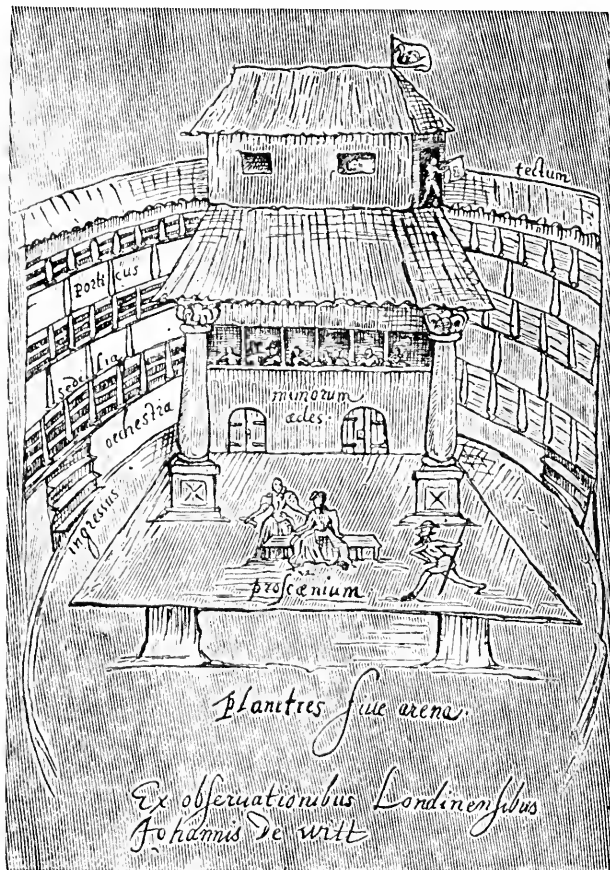 tectum
porticus
sedilia
orcheſtra
mimorum
ædes.
ingreſſus
proſcænium.
planities ſiue arena.
Ex obſeruationibus Londinenſibus
Johannis De witt